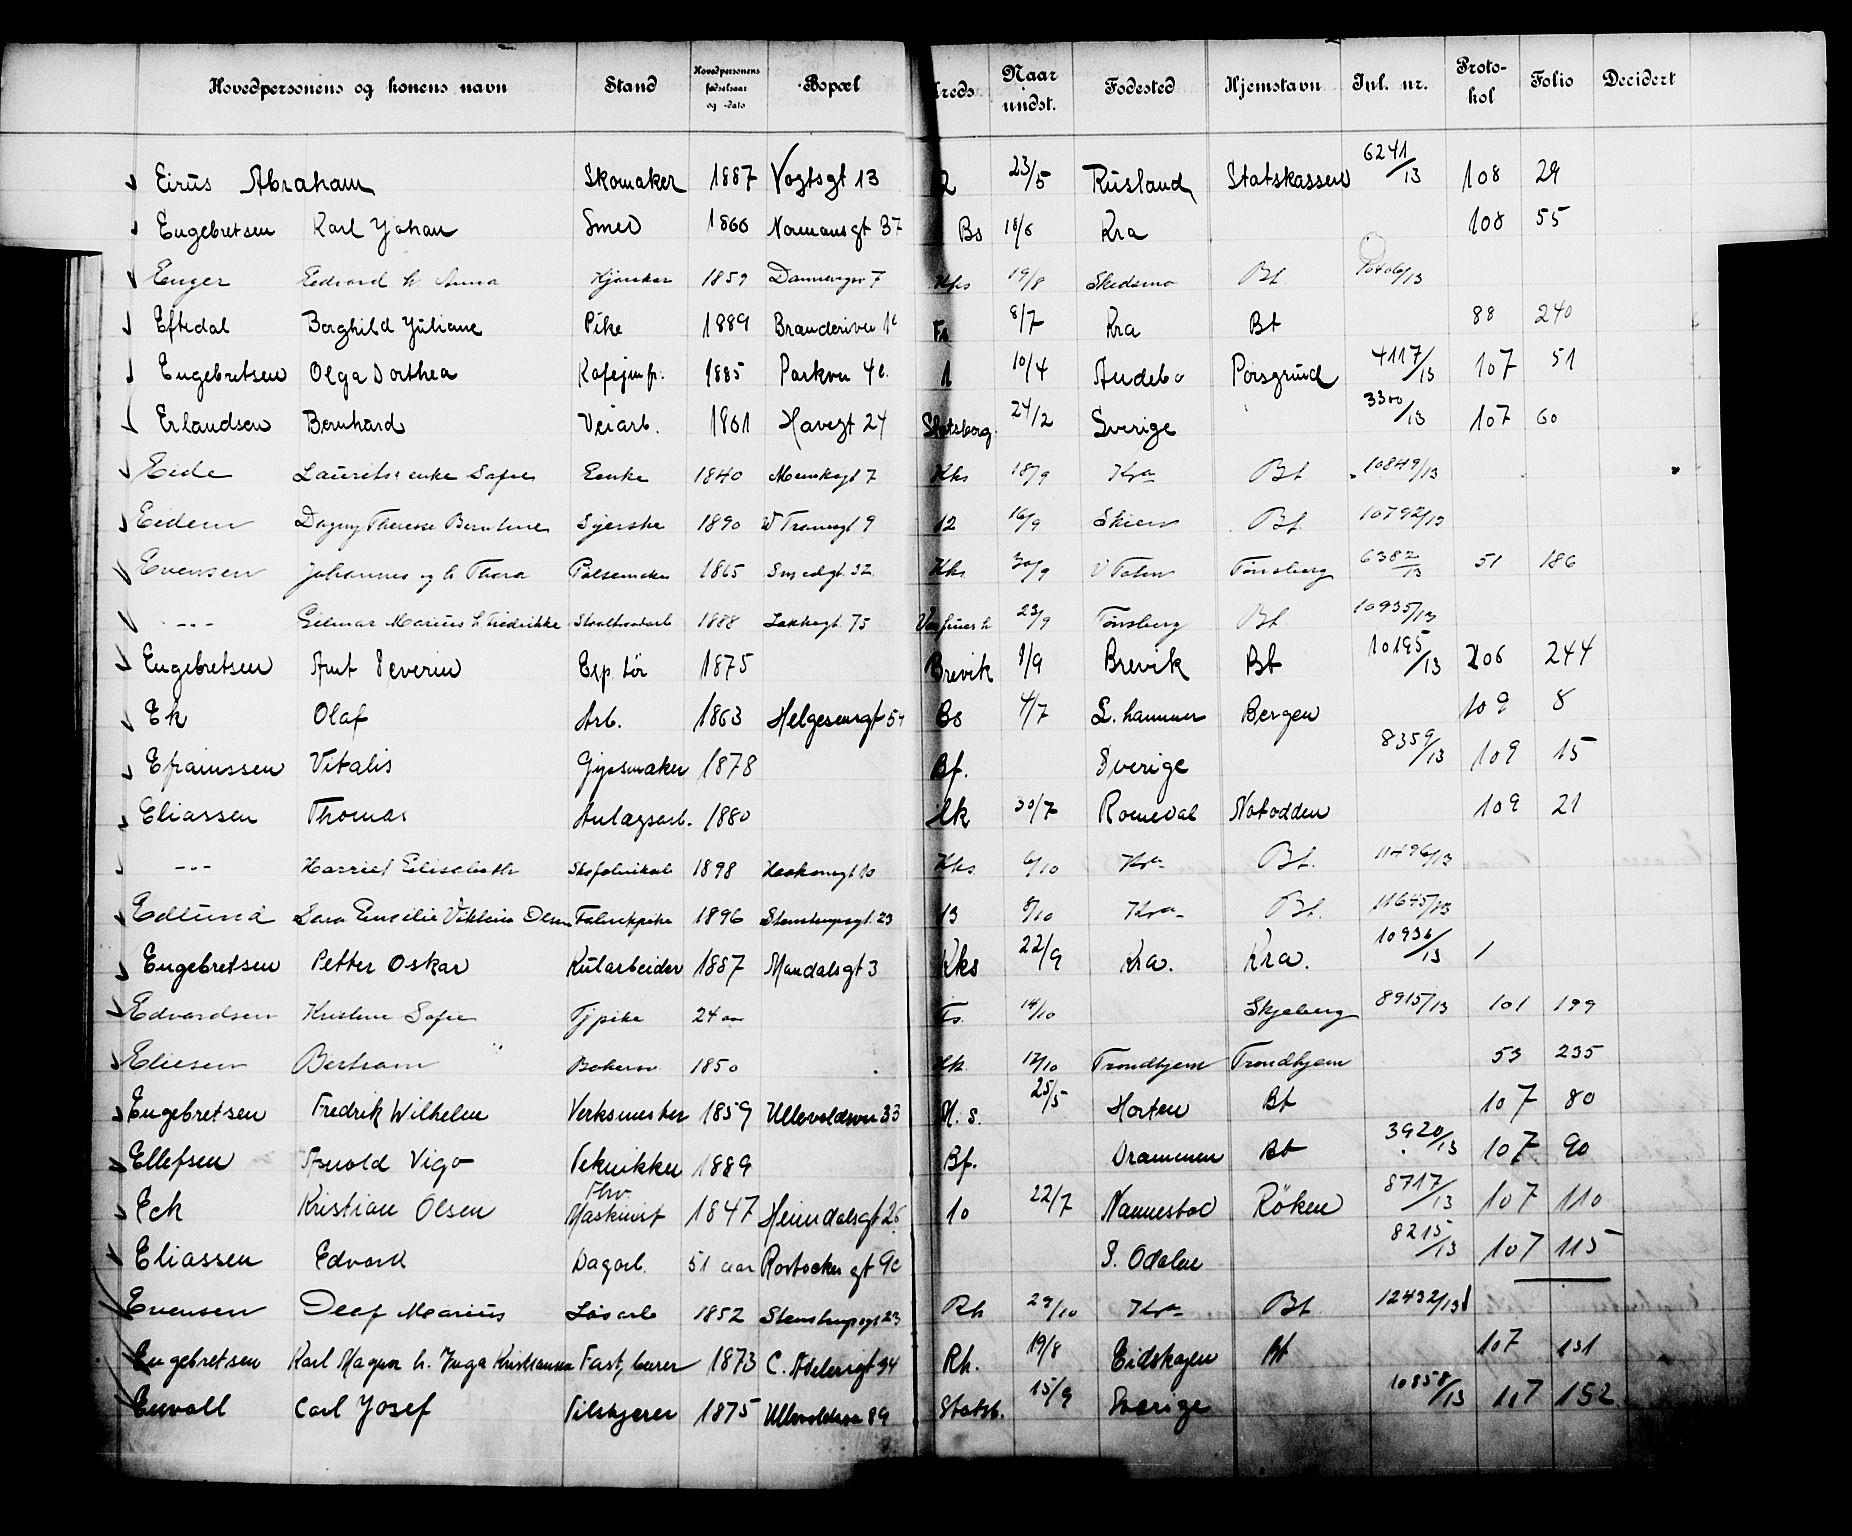 Hovedpersonens og konens navn Stand Hovedpersonens fødselsaar og -dato Bopæl Kreds Naar undst. Fødested Hjemstavn Inl. nr. Proto-kol Folio Decidert
Eirus Abraham Skomaker 1887 Vogtsgt 13 23/5 Rusland Statskassen 6241/13 108 29
Engebretsen Karl Johan Smed 1866 Normansgt 37 Bs 18/6 Kra 108 55
Enger Edvard h Anna 1859 Kks 19/8 Skedsmo Bt
Eftedal Borghild Juliane Pike 1889 8/7 Kra Bt 88 240
Engebretsen Olga Dorthea 1885 Parkvn 4c 1 10/4 Andebo Porsgrund 4117/13 107 51
Erlandsen Bernhard Veiarb. 1861 Havegt 24 24/2 Sverige 3300/13 107 60
Eide Laurits enke Sofie Enke 1840 Munkegt 7 Kks 18/9 Kra Bt 10849/13
Eidem Dagny Therese Berntine Syerske 1890 W Tranesgt 9 12 16/9 Skien Bt 10792/13
Evensen Johannes og h Thora Pølsemaker 1865 Smedgt. 32 Kks 30/9 V Toten Tønsberg 6382/13 51 186
--- Hilmar Marius h Fredrikke 1888 Lakkegt 75 23/9 Tønsberg Bt 10935/13
Engebretsen Amt Severin Exp.tør 1875 Brevik 1/9 Brevik Bt 10195/13 106 244
Ek Olaf Arb. 1863 Helgesensgt Bs 4/7 L.hammer Bergen 109 8
Efraimssen Vitalis Gipsmaker 1878 Bf. Sverige 8359/13 109 15
Eliassen Thomas Anlægsarb. 1880 30/7 Romedal Notodden 109 21
--- Harriet Elisabeth 1898 Haakonsgt 10 Kks 6/10 Kra Bt. 11496/13
Edlund Sara Emilie Viktoria Olsen Fabrikpike 1896 Stenstrupsgt. 23 13 8/10 Kra Bt. 11645/13
Engebretsen Petter Oskar Kularbeider 1887 Mandalsgt 3 Kks 22/9 Kra. Kra. 10936/13 1
Edvardsen Kristine Sofie Tjpike 24 aar Fs. 14/10 Skjeberg 8915/13 101 199
Eliesen Bertram 1850 17/10 Trondhjem Trondhjem 53 235
Engebretsen Fredrik Wilhelm Verksmester 1859 Ullevoldsvn 33 25/5 Horten Bt 107 80
Ellefsen Arnold Vigo Tekniker 1889 Bf. Drammen Bt 3920/13 107 90
Eck Kristian Olsen Fhv. Maskinist 1847 Heimdalsgt 26 10 22/7 Nannestad Røken 8717/13 107 110
Eliassen Edvard Dagarb. 51 aar Rostocker gt 9c S. Odalen 8215/13 107 115
Evensen Olaf Marius Løsarb 1852 Stenstrupsgt 23 Rh 29/10 Kra Bt 12432/13
Engebretsen Karl Magnus h. Inga Kristianna 1873 C. Adelersgt 34 Rh. 19/8 Eidskogen Bt 107 131
Envall Carl Josef Filskjærer 1875 Ullevoldsvn 89 Statsb. 15/9 Sverige 10858/13 107 152